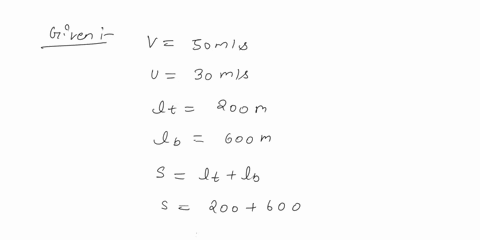 Given :-
V = 50 m/s
U = 30 m/s
lt = 200 m
lb = 600 m
S = lt + lb
S = 200 + 600